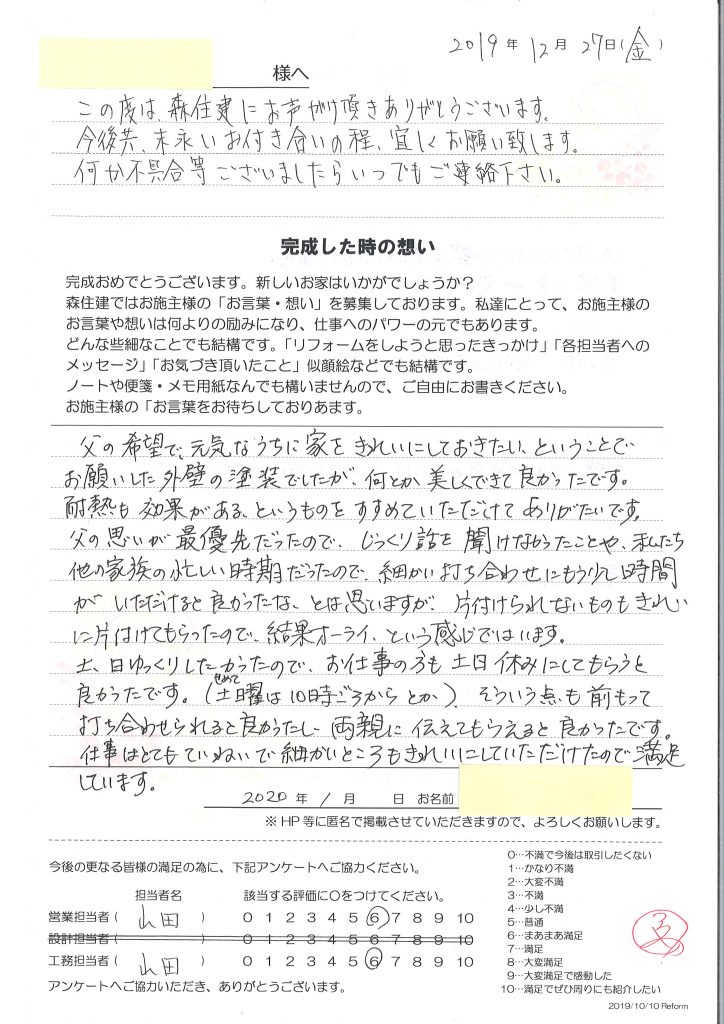 2019年 12月 27日(金)
様へ
この度は、森住建にお声がけ頂きありがとうございます。
今後共、末永いお付き合いの程、宜しくお願い致します。
何か不具合等ございましたらいつでもご連絡下さい。
完成した時の想い
完成おめでとうございます。新しいお家はいかがでしょうか？
森住建ではお施主様の「お言葉・想い」を募集しております。私達にとって、お施主様の
お言葉や想いは何よりの励みになり、仕事へのパワーの元でもあります。
どんな些細なことでも結構です。「リフォームをしようと思ったきっかけ」「各担当者への
メッセージ」「お気づき頂いたこと」似顔絵などでも結構です。
ノートや便箋・メモ用紙なんでも構いませんので、ご自由にお書きください。
お施主様の「お言葉をお待ちしておりあます。
父の希望で、元気なうちに家をきれいにしておきたい、ということで
お願いした外壁の塗装でしたが、何とか美しくできて良かったです。
耐熱も効果がある、というものをすすめていただけてありがたいです。
父の思いが最優先だったので、じっくり話を聞けなかったことや、私たち
他の家族の忙しい時期だったので、細かい打ち合わせにもう少し時間
がいただけると良かったな、とは思いますが、片付けられないものもきれい
に片付けてもらったので、結果オーライ、という感じではいます。
土、日ゆっくりしたかったので、お仕事の方も土日休みにしてもらうと
良かったです。(せめて土曜は10時ごろからとか)、そういう点も前もって
打ち合わせられると良かったし、両親に伝えてもらえると良かったです。
仕事はとてもていねいで細かいところもきれいにしていただけたので満足
しています。
2020年 1月 日 お名前
※HP等に匿名で掲載させていただきますので、よろしくお願いします。
今後の更なる皆様の満足の為に、下記アンケートへご協力ください。
担当者名 該当する評価に○をつけてください。
営業担当者( 山田 ) 0 1 2 3 4 5 6 7 8 9 10
設計担当者( ) 0 1 2 3 4 5 6 7 8 9 10
工務担当者( 山田 ) 0 1 2 3 4 5 6 7 8 9 10
アンケートへご協力いただき、ありがとうございます。
0…不満で今後は取引したくない
1…かなり不満
2…大変不満
3…不満
4…少し不満
5…普通
6…まあまあ満足
7…満足
8…大変満足
9…大変満足で感動した
10…満足でぜひ周りにも紹介したい
2019/10/10 Reform